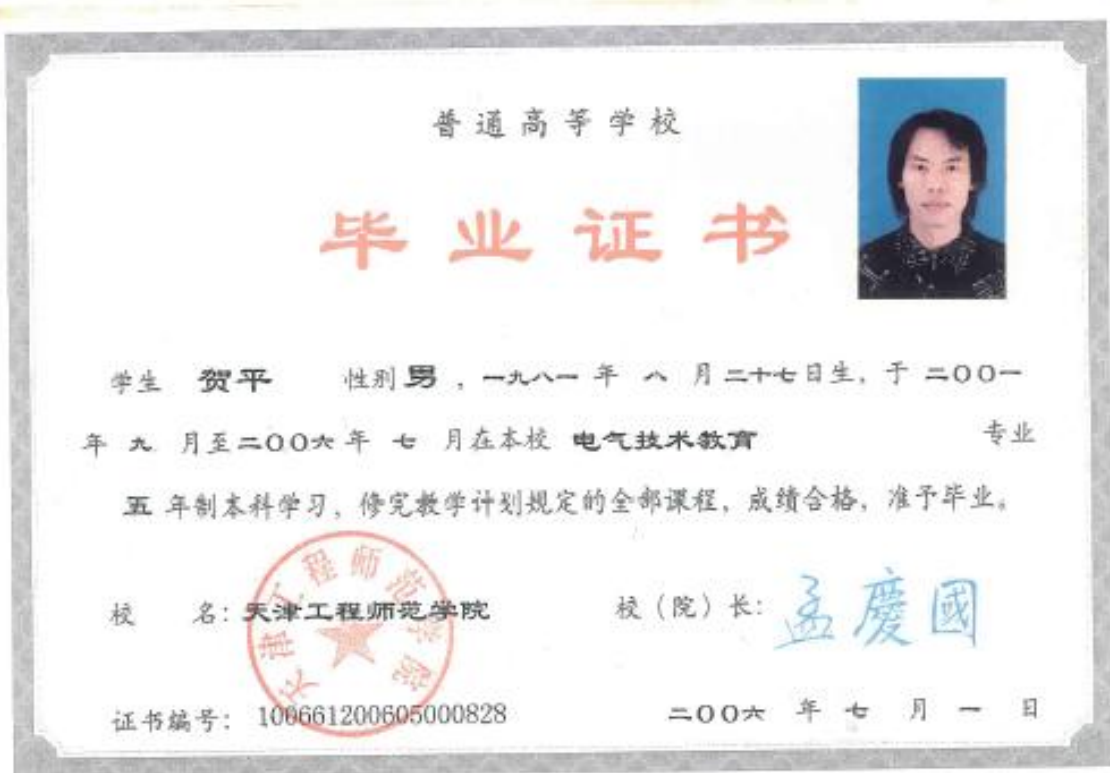 普通高等学校
毕业证书
学生 贺平 性别 男 ，一九八一 年 八 月 二十七日生，于 二OO一
年 九 月至二OO六 年 七 月在本校 电气技术教育 专业
五 年制本科学习，修完教学计划规定的全部课程，成绩合格，准予毕业。
天津工程师范学院
校 名：天津工程师范学院 校（院）长：孟慶國
证书编号：100661200605000828 二OO六 年 七 月 一 日